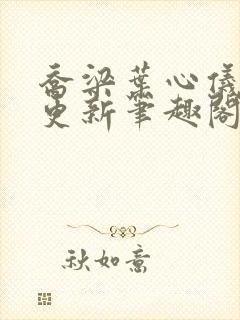 乔梁叶心仪
更新笔趣阁
秋如意